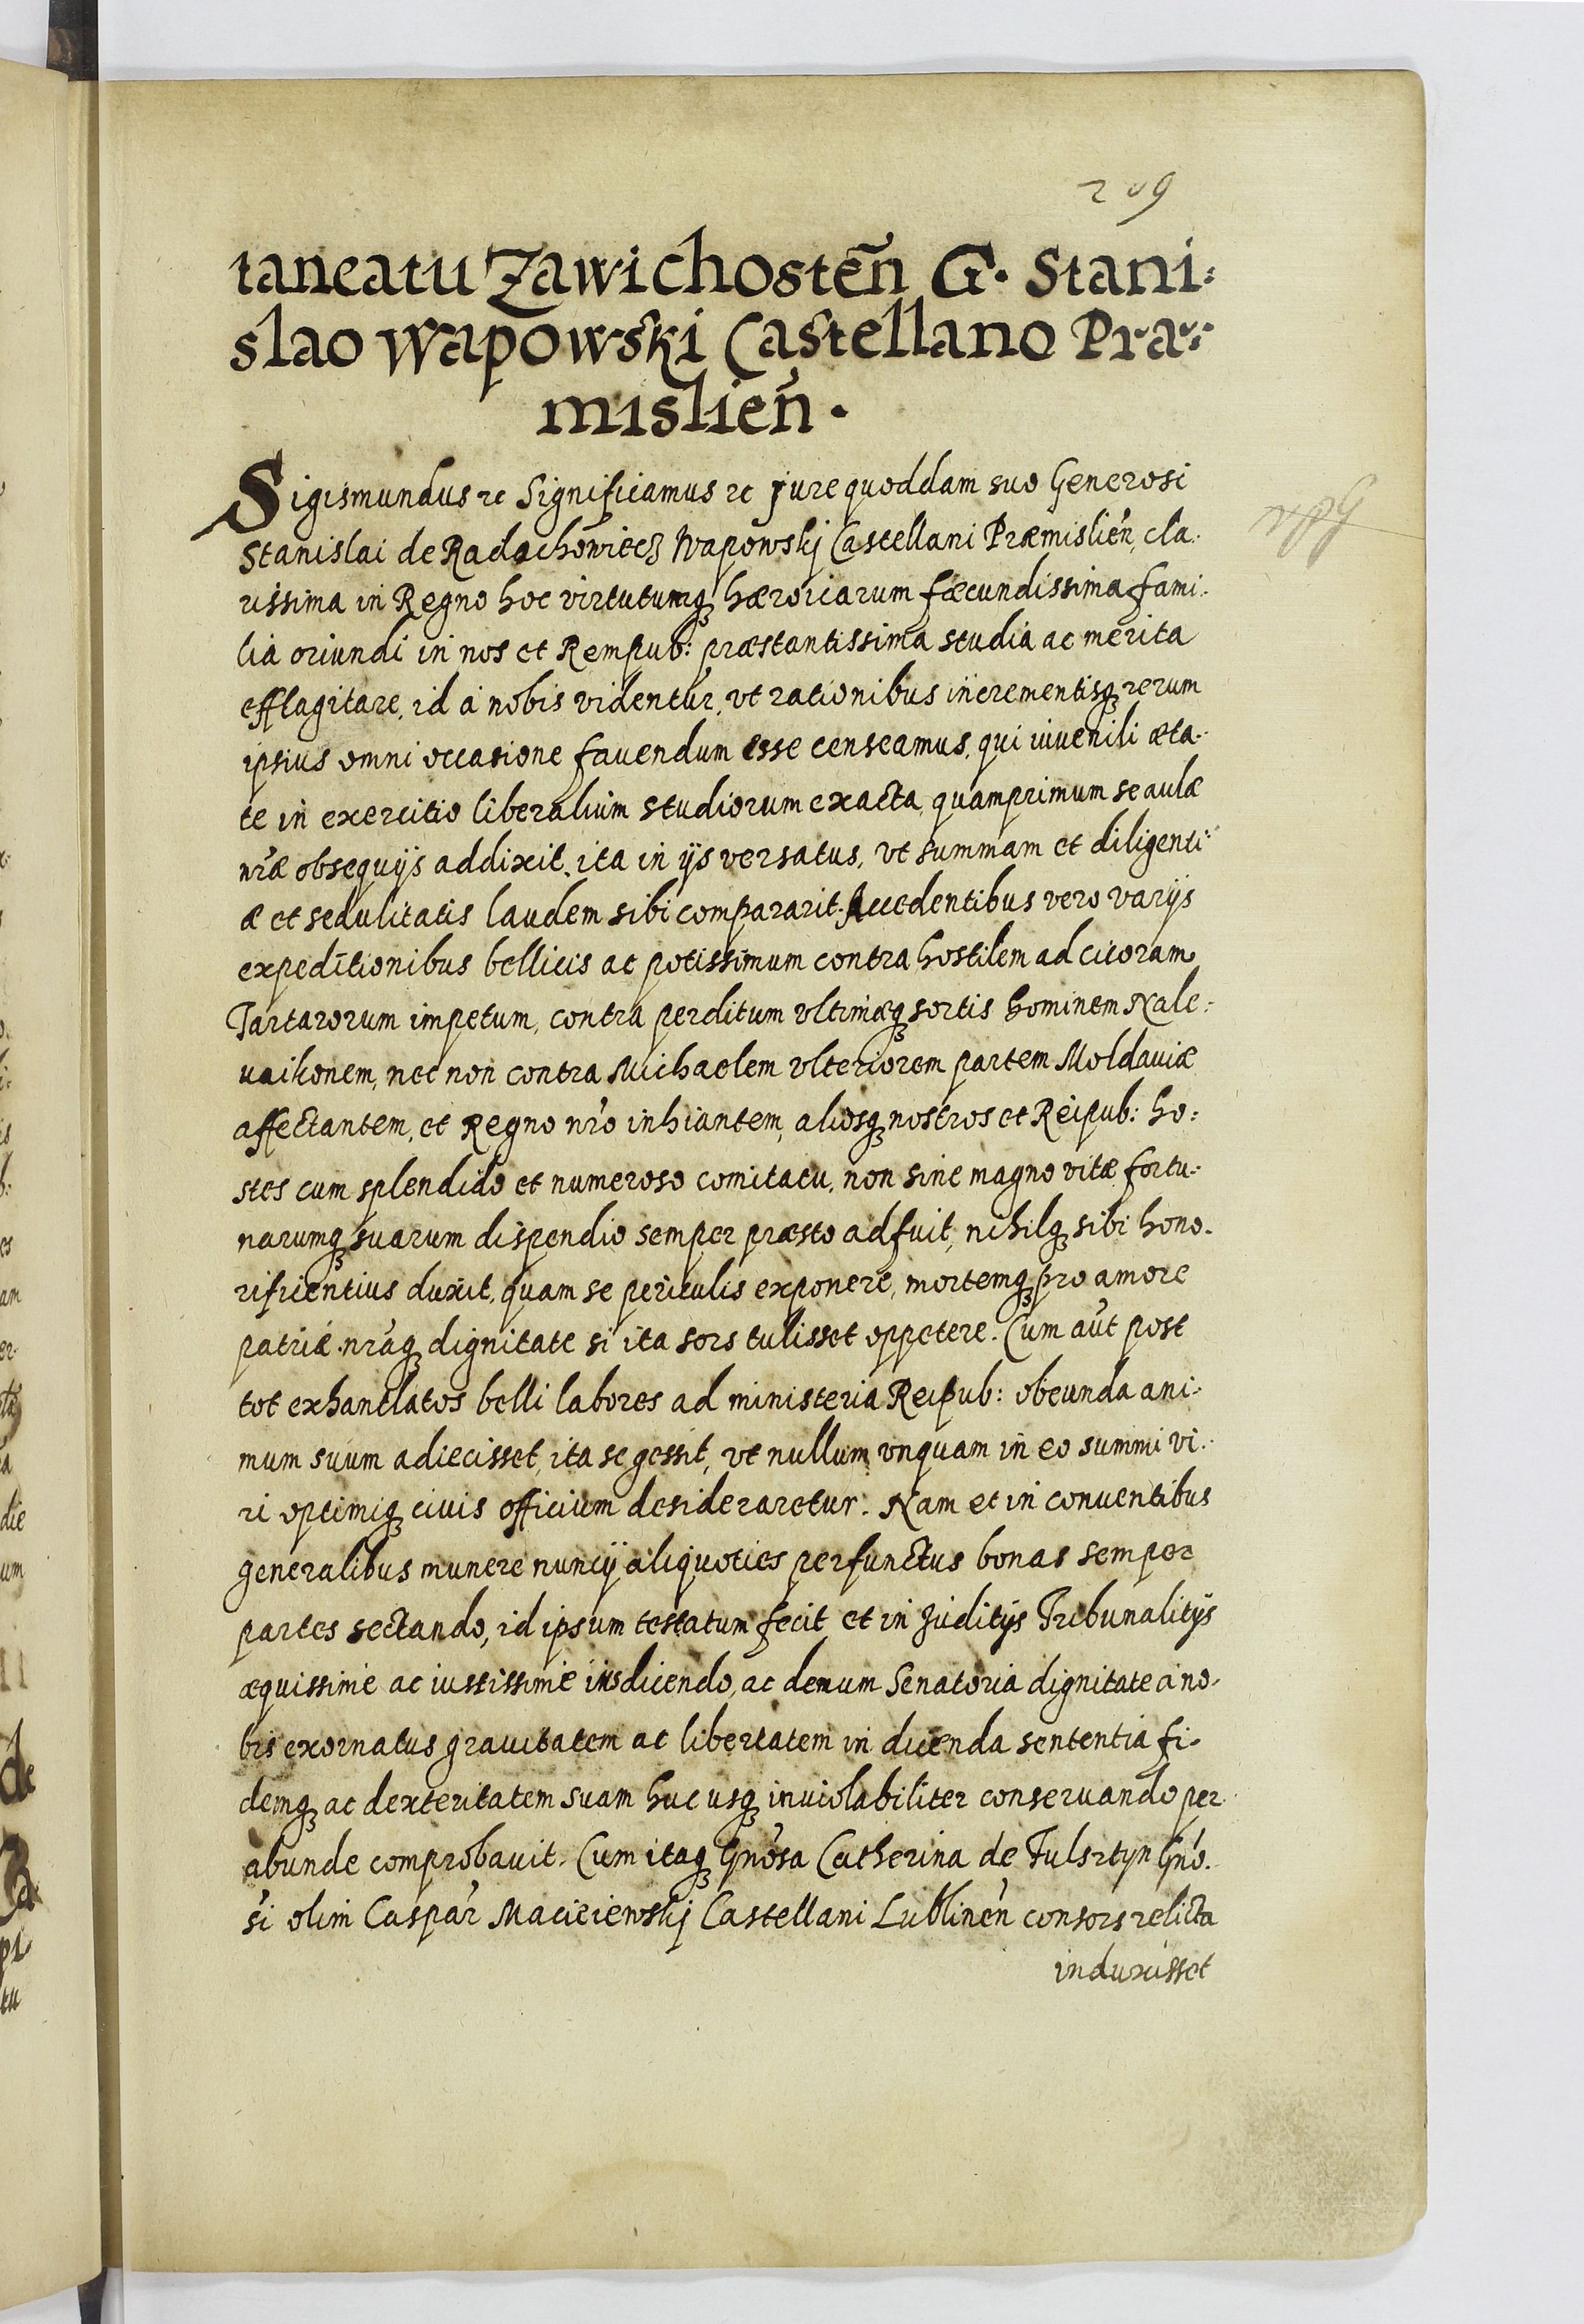 209
taneatu Zawichosten̄ G. Stani:
slao Wapowski Castellano Præ:
mislien̄.
Sigismundus rc Significamus rc jure quoddam suo Generosi
Stanislai de Radochowicz Wapowskj Castellani Præmislien̄, cla.
rissima in Regno hoc virtutumqꝫ hæroicarum fæcundissima fami:
lia oriundi in nos et Rempub: præstantissima studia ac merita
efflagitare, id a nobis videntur, vt rationibus incrementisqꝫ rerum
ipsius omni occasione fauendum esse censeamus, qui iuuenili æta:
te in exercitio liberalium studiorum exacta, quamprimum se aulæ
nr̃æ obsequijs addixit, ita in ijs versatus, vt summam et diligenti:
æ et sedulitatis laudem sibi compararit. Accedentibus vero varijs
expeditionibus bellicis ac potissimum contra hostilem ad cicoram
Tartarorum impetum, contra perditum vltimæqꝫ sortis hominem Nale:
uaikonem, nec non contra Michaelem vlteriorem partem Moldauiæ
affectantem, et Regno nr̃o inhiantem, aliosqꝫ nostros et Reipub: ho:
stes cum splendido et numeroso comitatu, non sine magno vitæ fortu:
narumqꝫ suarum dispendio semper præsto adfuit, nihilqꝫ sibi hono.
rificentius duxit, quam se periculis exponere, mortemqꝫ pro amore
patriæ nr̃aqꝫ dignitate si ita sors tulisset oppetere. Cum aut̃ post
tot exhantlatos belli labores ad ministeria Reipub: obeunda ani:
mum suum adiecisset, ita se gessit, vt nullum vnquam in eo summi vi.
ri optimiqꝫ ciuis officium desideraretur. Nam et in conuentibus
generalibus munere nuncij aliquoties perfunctus bonas semper
partes sectando, id ipsum testatum fecit et in Juditijs Tribunalitijs
æquissime ac iustissime ius dicendo, ac demum Senatoria dignitate a no.
bis exornatus grauitatem ac libertatem in dicenda sententia fi.
demqꝫ ac dexteritatem suam huc usqꝫ inuiolabiliter conseruando per.
abunde comprobauit. Cum itaqꝫ Gnõsa Catherina de Fulsztyn Gnõ.
si olim Caspar̃ Macieiewskj Castellani Lublinen̄ consors relicta
induxisset